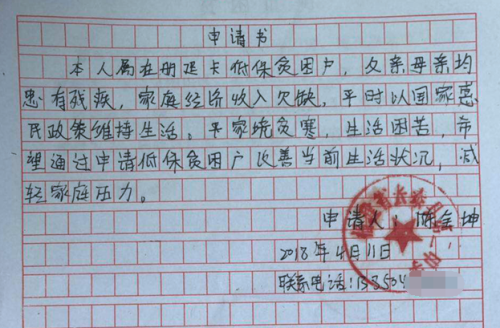 申请书
本人属在册建卡低保贫困户，父亲母亲均
患有残疾，家庭经济收入欠缺，平时以国家惠
民政策维持生活。平家境贫寒，生活困苦，希
望通过申请低保贫困户改善当前生活状况，减
轻家庭压力。
申请人：陈金坤
2018年4月11日
联系电话：138504